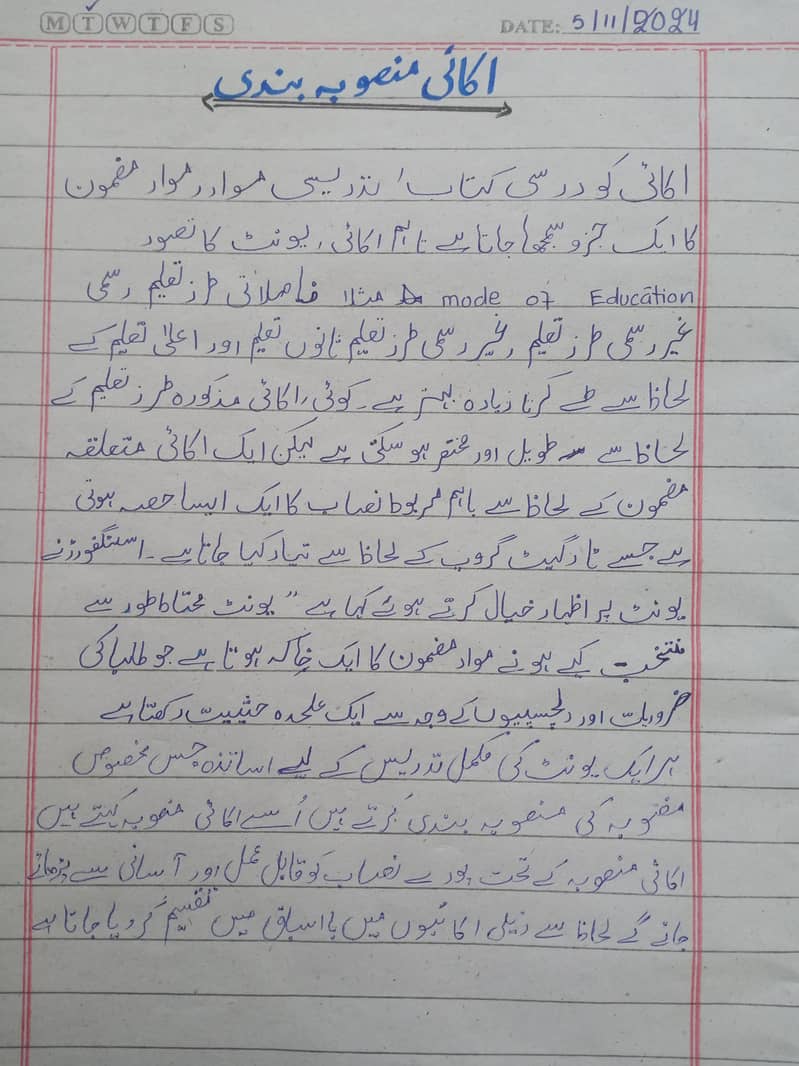 M T W T F S DATE: 5/11/2024
اکائی منصوبہ بندی
اکائی کو درسی کتاب، تدریسی مواد ر مواد مضمون
کا ایک جزو سمجھا جاتا ہے تاہم اکائی ر یونٹ کا تصور
mode of Education مثلا فاصلاتی طرز تعلیم رسمی
غیر رسمی طرز تعلیم ر غیر رسمی طرز تعلیم ثانوں تعلیم اور اعلیٰ تعلیم کے
لحاظ سے طے کرنا زیادہ بہتر ہے۔ کوئی ر اکائی مذکورہ طرز تعلیم کے
لحاظ سے طویل اور مختصر ہو سکتی ہے لیکن ایک اکائی متعلقہ
مضمون کے لحاظ سے باہم مربوط نصاب کا ایک ایسا حصہ ہوتی
ہے جسے تارگیٹ گروپ کے لحاظ سے تیار کیا جاتا ہے۔ اسٹنفورڈ نے
یونٹ پر اظہار خیال کرتے ہوئے کہا ہے " یونٹ محتاط طور سے
منتخب کیے ہونے مواد مضمون کا ایک خاکہ ہوتا ہے جو طلبا کی
ضروریات اور دلچسپیوں کے وجہ سے ایک علحدہ حثییت رکھتا ہے
ہر ایک یونٹ کی مکمل تدریس کے لیے اساتذہ جس مخصوص
منصوبہ کی منصوبہ بندی کرتے ہیں اُسے اکائی منصوبہ کہتے ہیں
اکائی منصوبہ کے تحت پورے نصاب کو قابل عمل اور آسانی سے پڑھائے
جانے گے لحاظ سے ذیلی اکائیوں میں یا اسباق میں تقسیم کر دیا جاتا ہے